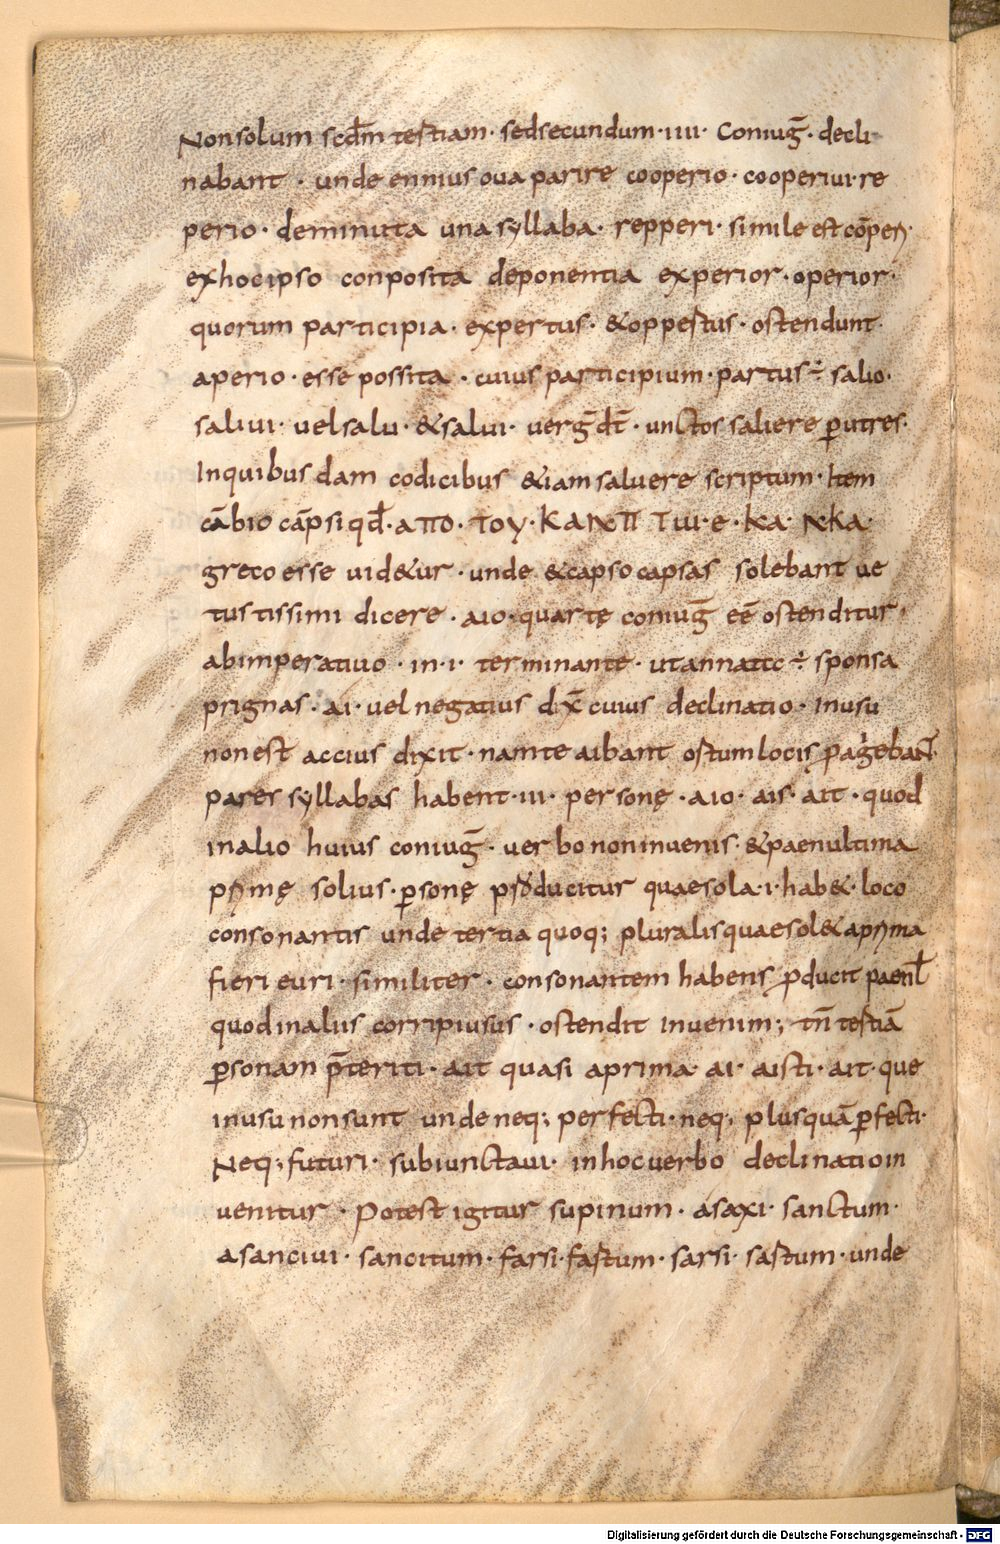 Non solum scdm̄ testiam · sedsecundum · iiii · Coniug̅ · decli-
nabant · unde ennius oua parire cooperio · cooperiui · re
perio · deminuta una syllaba · repperi · simile est cōperi ·
exhocipso conposita deponentia experior · operior ·
quorum participia · expertus · &oppestus · ostendunt ·
aperio · esse possita · cuius participium · partus ÷ salio ·
saliui · uelsalu · &salui · uerg̅ dt̅ · unctos saliere putres ·
Inquibus dam codicibus &iam saluere scriptum · Item
cābio cāpsi qd̅ · aπo · τoy ·
greco esse uid&ur · unde &capso capsas solebant ue
tustissimi dicere · aio · quartę coniug̅ eē ostenditur ·
abimperatiuo · in · i · terminante · ut ÷ sponsa
prignas · ai · uel negatius dix̄ cuius declinatio · Inusu
nonest accius dixit · namte aibant ostumlocis
pares syllabas habent · iii · personę · aio · ais · ait · quod
inalio huius coniug̅ · uerbo noninuenis · &paenultima
prımę solius · psonę producitur quaesola · i · hab& · loco
consonantis unde tertia quoq; pluralis quaesol& aprima
fieri euri · similiter · consonantem habens producit paenl̅
quodinalus corripiusus · ostendit Inuenim; tn̄ testiā
psonam p̄teriti · ait quasi aprima · ai · aisti · ait · que
inusu nonsunt unde neq; perfecti · neq; plusquā pfecti ·
Neq; futuri · subiunctaui · inhoc uerbo declinatioin
uenitur · Potest igitur supinum · asaxi · sanctum ·
asanciui · sancitum · farsi · fastum · sarsi · sastum · unde
Digitalisierung gefördert durch die Deutsche Forschungsgemeinschaft - DFG